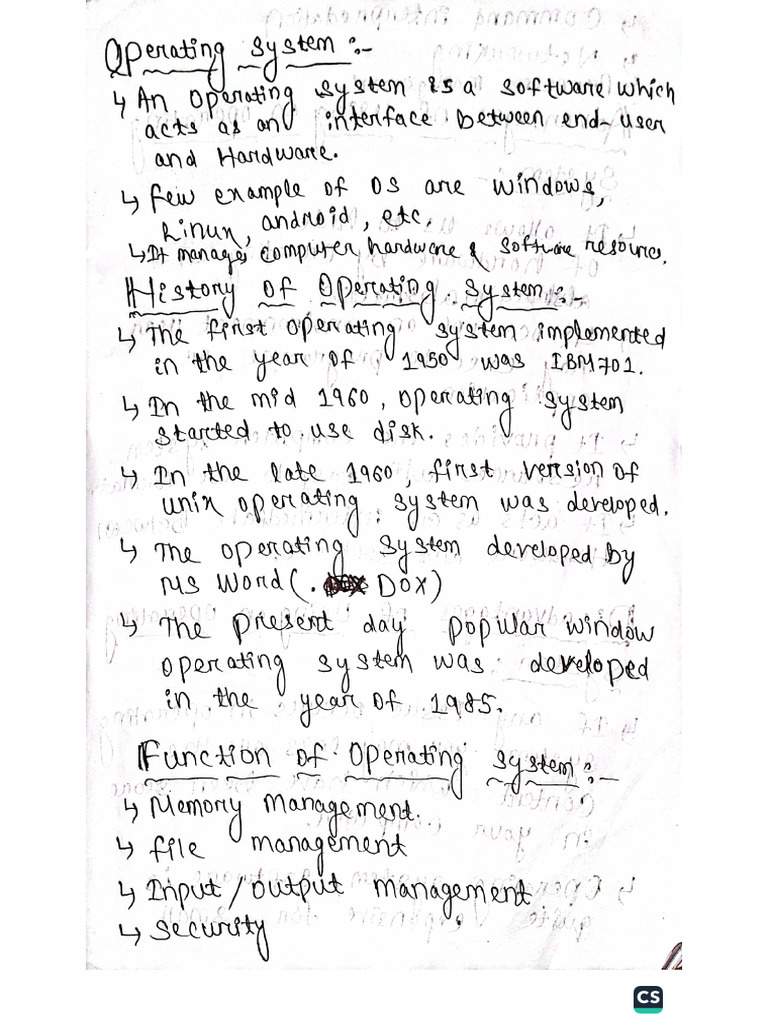 Operating System :-
↳ An operating system is a software which
acts as an interface between end-user
and Hardware.
↳ few example of OS are windows,
Linux, android, etc.
↳ It manages computer hardware & software resources.
History of Operating System :-
↳ The first operating system implemented
in the year of 1950 was IBM701.
↳ In the mid 1960, operating system
started to use disk.
↳ In the late 1960, first version of
unix operating system was developed.
↳ The operating system developed by
MS Word (. DOX)
↳ The present day popular window
operating system was developed
in the year of 1985.
Function of Operating System :-
↳ Memory management.
↳ file management
↳ Input/output management
↳ Security
CS